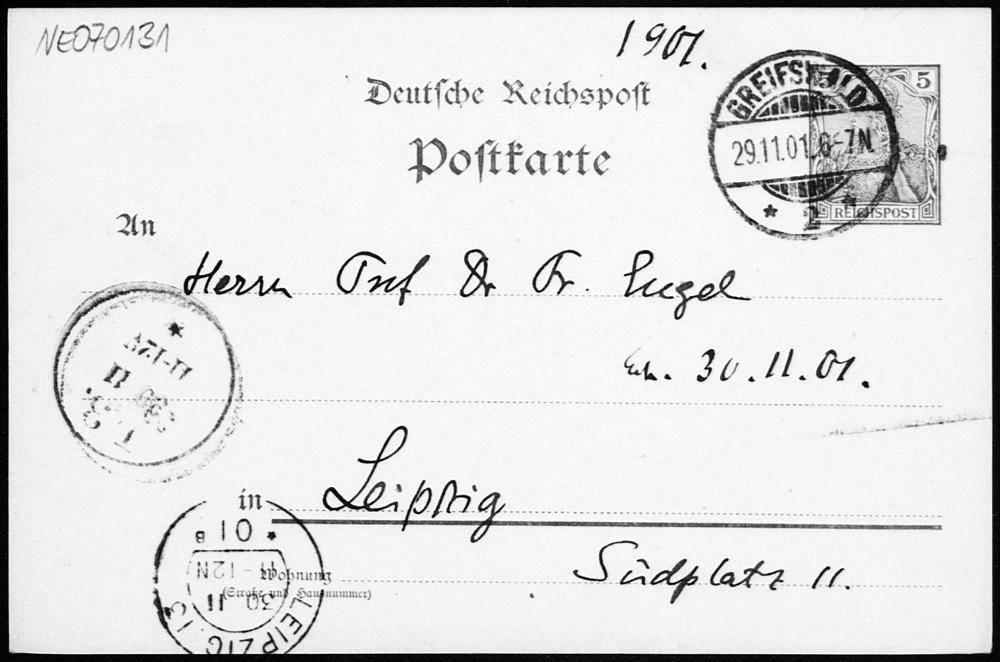 NE070131
1901.
Deutsche Reichspost
Postkarte
GREIFSWALD
29.11.01. 6-7N.
* 2 *
5
REICHSPOST
An
Herrn Prof Dr Fr. Engel
Erh. 30.11.01.
in Leipzig
Südplatz 11.
Wohnung
(Straße und Hausnummer)
11-12V
30 11
LEIPZIG 13
30 11
11-12N
* 01 B